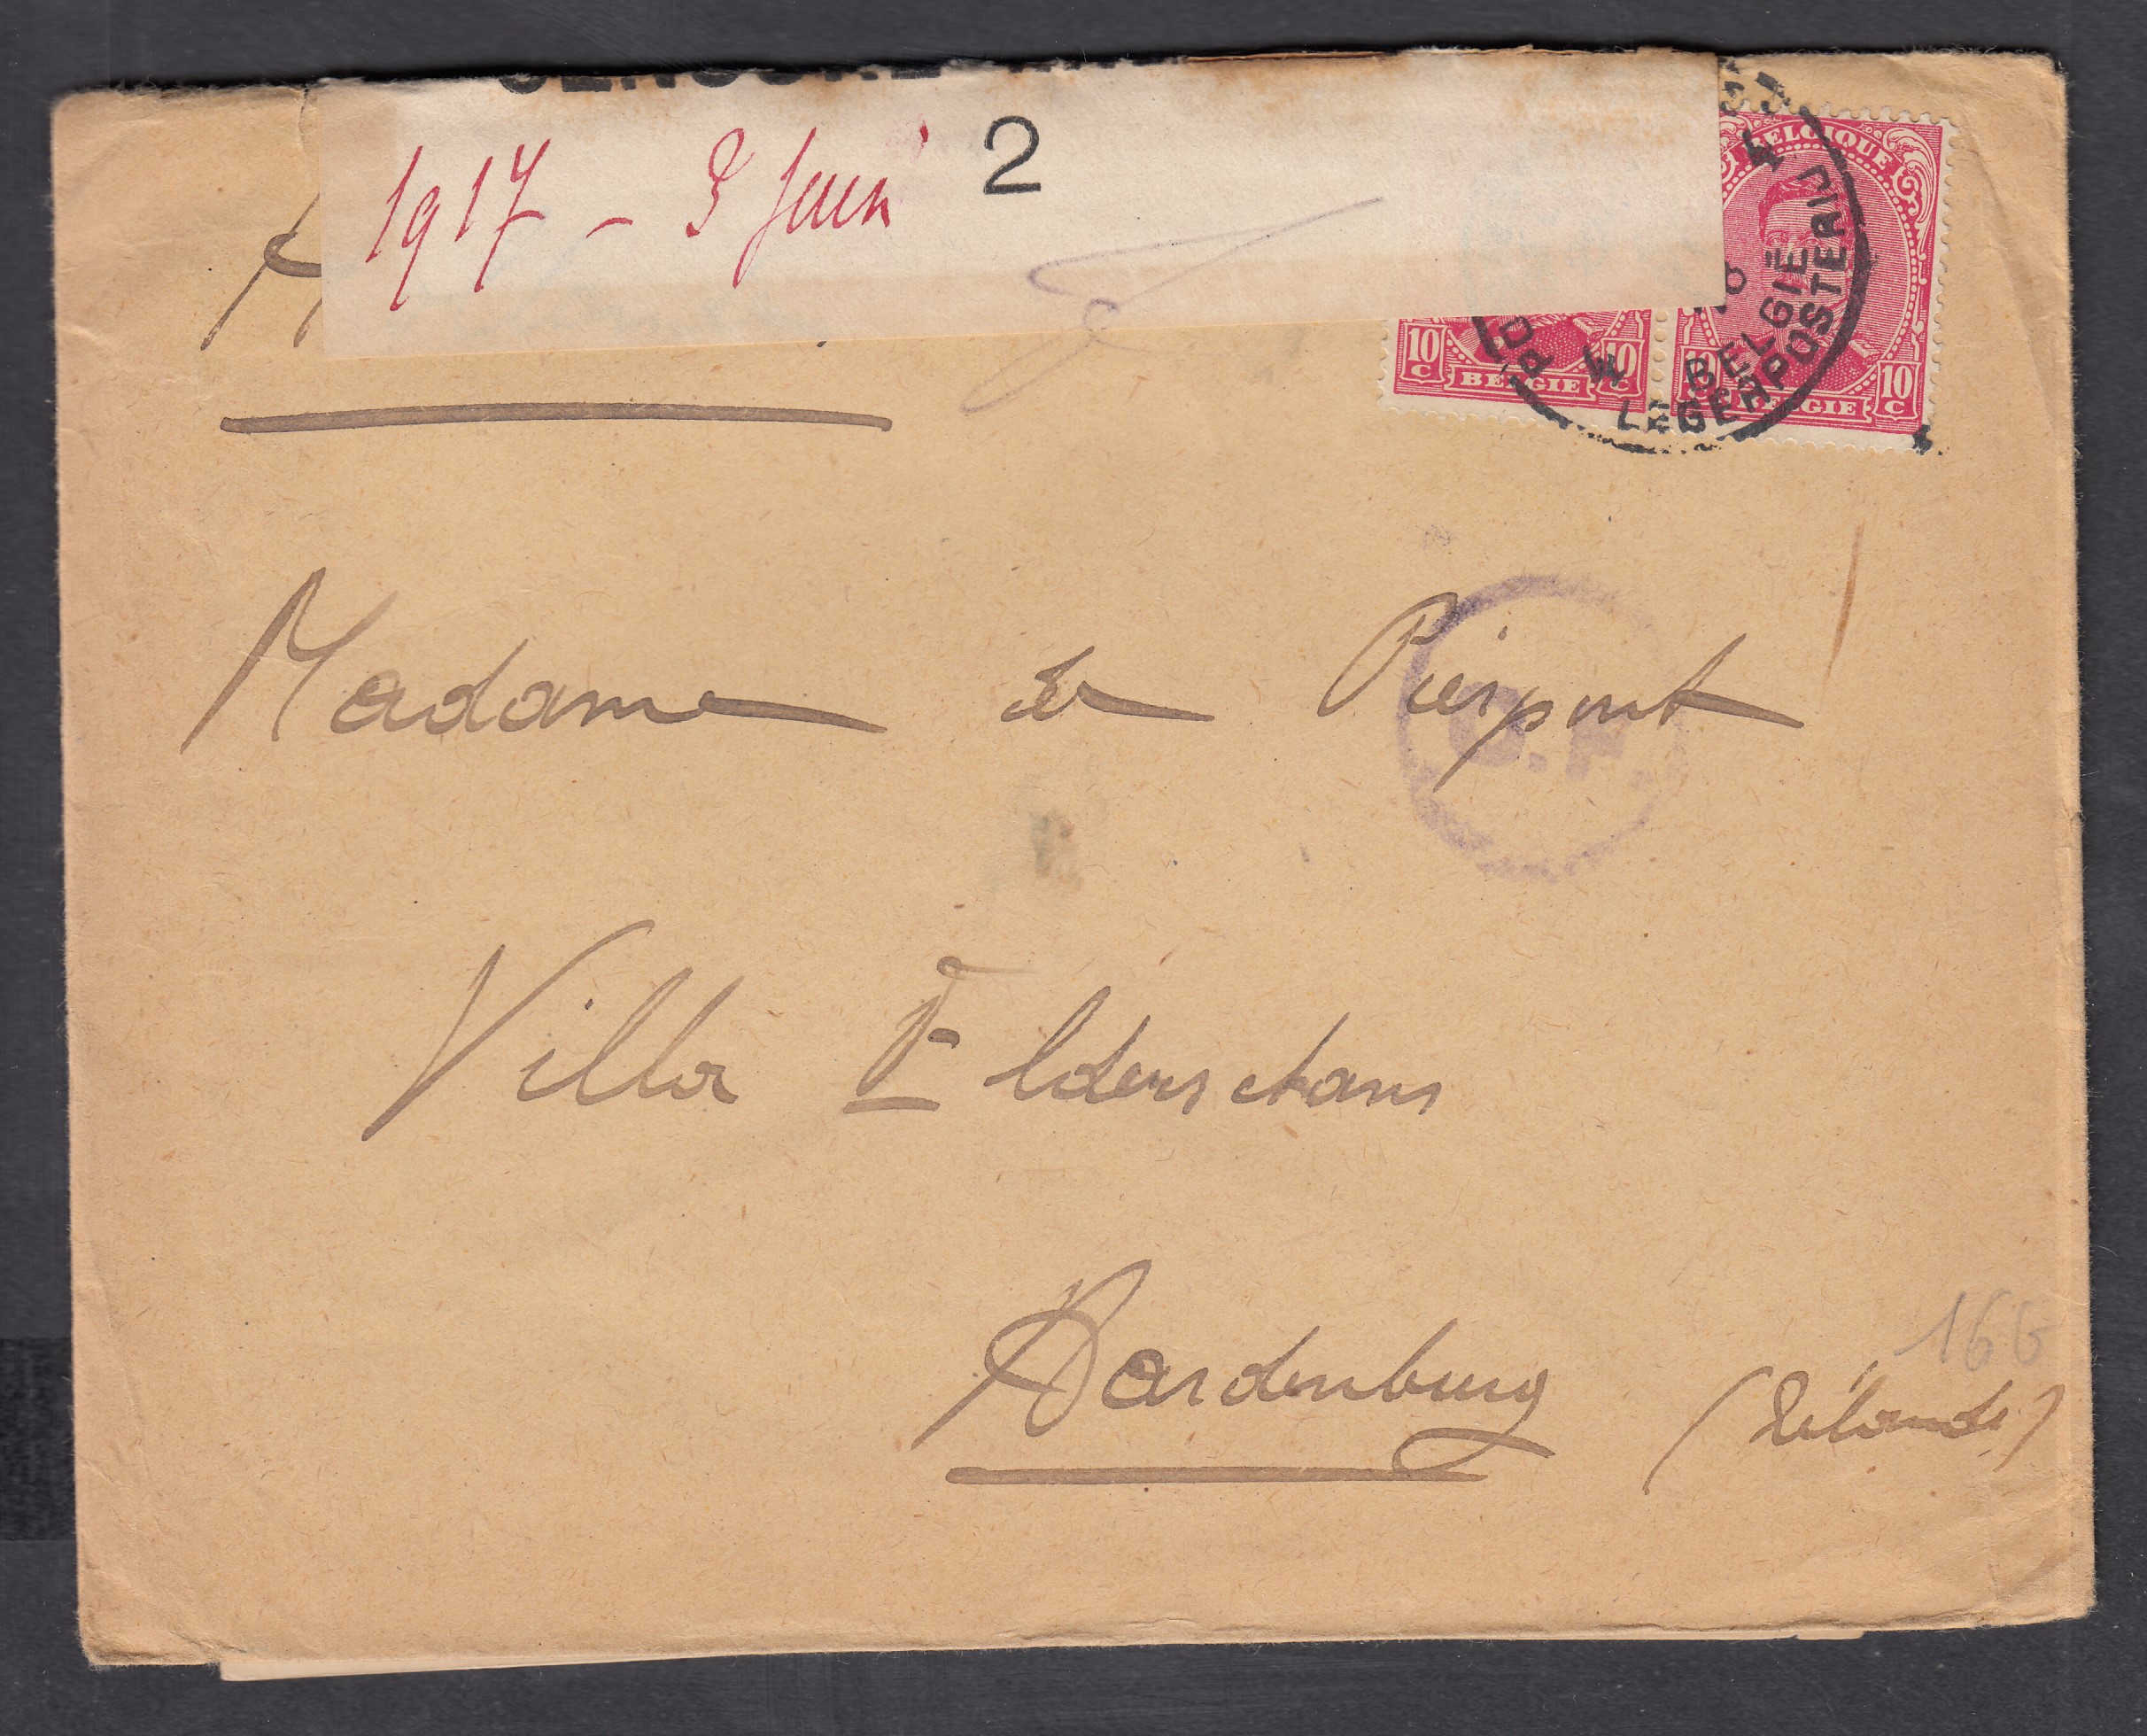 CENSURE
1917 - 3 Juin
2
BELGIQUE
10 C BELGIE 10 C
10 C BELGIE 10 C
BELGIË
LEGERPOSTERIJ
4
Madame de Pierpont
Villa Elderschans
Aardenburg
(Zélande)
166